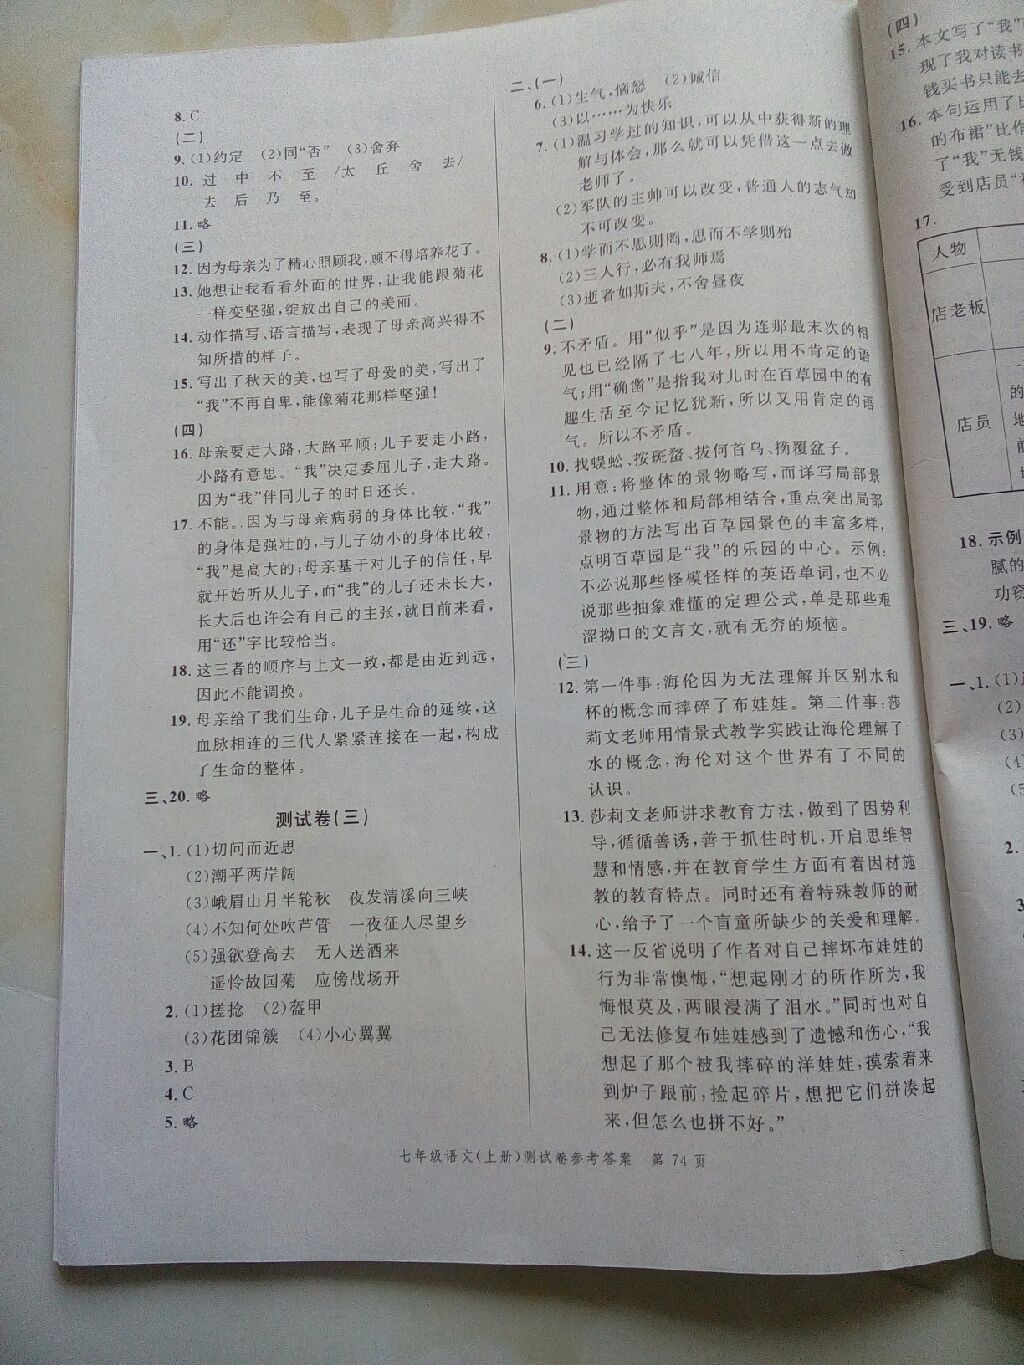 8. C
(二)
9. (1)约定 (2)同“否” (3)舍弃
10. 过 中 不 至/太 丘 舍 去/
去 后 乃 至。
11. 略
(三)
12. 因为母亲为了精心照顾我,顾不得培养花了。
13. 她想让我看看外面的世界,让我能跟菊花
一样变坚强,绽放出自己的美丽。
14. 动作描写、语言描写,表现了母亲高兴得不
知所措的样子。
15. 写出了秋天的美,也写了母爱的美,写出了
“我”不再自卑,能像菊花那样坚强!
(四)
16. 母亲要走大路,大路平顺;儿子要走小路,
小路有意思。“我”决定委屈儿子,走大路。
因为“我”伴同儿子的时日还长。
17. 不能。因为与母亲病弱的身体比较,“我”
的身体是强壮的,与儿子幼小的身体比较,
“我”是高大的;母亲基于对儿子的信任,早
就开始听从儿子,而“我”的儿子还未长大,
长大后也许会有自己的主张,就目前来看,
用“还”字比较恰当。
18. 这三者的顺序与上文一致,都是由近到远,
因此不能调换。
19. 母亲给了我们生命,儿子是生命的延续,这
血脉相连的三代人紧紧连接在一起,构成
了生命的整体。
三、20. 略
测试卷(三)
一、1. (1)切问而近思
(2)潮平两岸阔
(3)峨眉山月半轮秋 夜发清溪向三峡
(4)不知何处吹芦管 一夜征人尽望乡
(5)强欲登高去 无人送酒来
遥怜故园菊 应傍战场开
2. (1)搓捻 (2)盔甲
(3)花团锦簇 (4)小心翼翼
3. B
4. C
5. 略
二、(一)
6. (1)生气,恼怒 (2)诚信
(3)以……为快乐
7. (1)温习学过的知识,可以从中获得新的理
解与体会,那么就可以凭借这一点去做
老师了。
(2)军队的主帅可以改变,普通人的志气却
不可改变。
8. (1)学而不思则罔,思而不学则殆
(2)三人行,必有我师焉
(3)逝者如斯夫,不舍昼夜
(二)
9. 不矛盾。用“似乎”是因为连那最末次的相
见也已经隔了七八年,所以用不肯定的语
气;用“确凿”是指我对儿时在百草园中的有
趣生活至今记忆犹新,所以又用肯定的语
气。所以不矛盾。
10. 找蜈蚣、按斑蝥、拔何首乌、摘覆盆子。
11. 用意:将整体的景物略写,而详写局部景
物,通过整体和局部相结合,重点突出局部
景物的方法写出百草园景色的丰富多样,
点明百草园是“我”的乐园的中心。示例:
不必说那些怪模怪样的英语单词,也不必
说那些抽象难懂的定理公式,单是那些艰
涩拗口的文言文,就有无穷的烦恼。
(三)
12. 第一件事:海伦因为无法理解并区别水和
杯的概念而摔碎了布娃娃。第二件事:莎
莉文老师用情景式教学实践让海伦理解了
水的概念,海伦对这个世界有了不同的
认识。
13. 莎莉文老师讲求教育方法,做到了因势利
导,循循善诱,善于抓住时机,开启思维智
慧和情感,并在教育学生方面有着因材施
教的教育特点。同时还有着特殊教师的耐
心,给予了一个盲童所缺少的关爱和理解。
14. 这一反省说明了作者对自己摔坏布娃娃的
行为非常懊悔,“想起刚才的所作所为,我
悔恨莫及,两眼浸满了泪水。”同时也对自
己无法修复布娃娃感到了遗憾和伤心,“我
想起了那个被我摔碎的洋娃娃,摸索着来
到炉子跟前,捡起碎片,想把它们拼凑起
来,但怎么也拼不好。”
七年级语文(上册)测试卷参考答案 第 74 页
(四)
15. 本文写了“我”
现了我对读书
钱买书只能去
16. 本句运用了
的布裙”比作
了“我”无钱
受到店员“
17.
人物
店老板
店员
18. 示例
腻的
功窃
三、19. 略
一、1. (1)
(2)
(3)
(4)
(5
2.
3